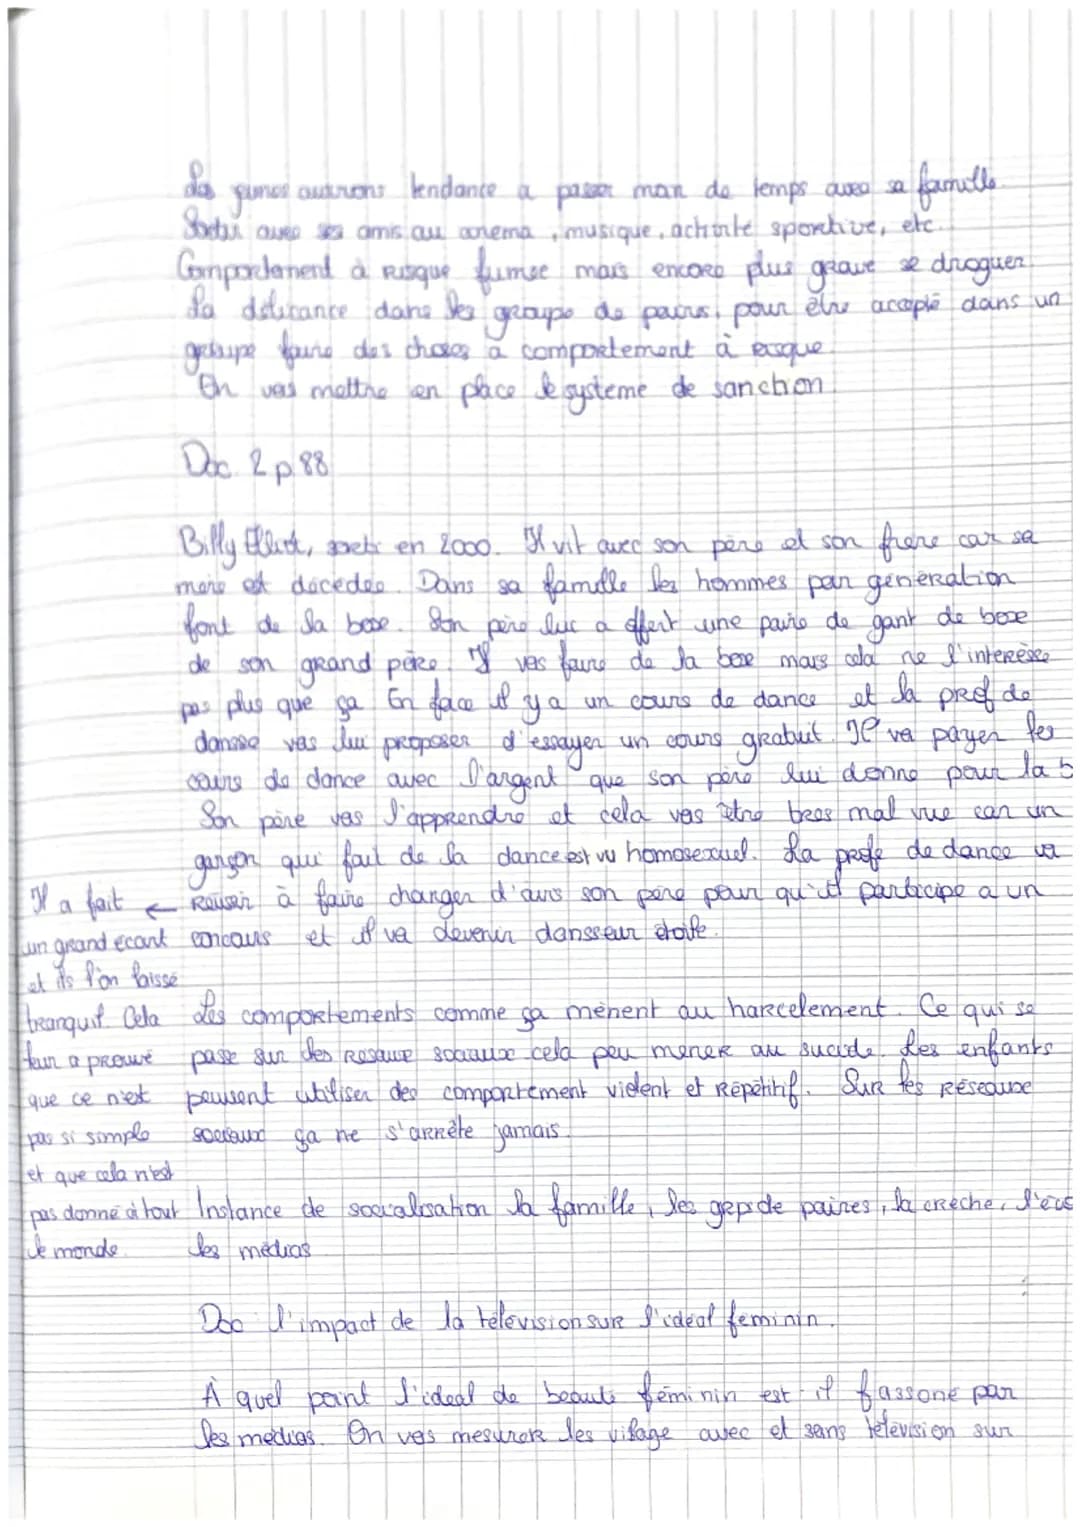 Les jeunes auront tendance a passer moin de temps avec sa famille
Sortir avec ses amis au cinema, musique, activité sportive, etc.
Comportement à risque fumer mais encore plus grave se droguer
La déliquance dans les groupe de paires, pour être accepté dans un
groupe faire des choses a comportement à risque.
On vas mettre en place le système de sanction.
Doc 2 p 88
Billy Elliot, sorti en 2000. Il vit avec son père et son frère car sa
mère est décédée. Dans sa famille les hommes par génération
font de la boxe. Son père lui a offert une paire de gant de boxe
de son grand père. Il vas faire de la boxe mais cela ne l'interesse
pas plus que ça En face il y a un cours de dance et la prof de
dansse vas lui proposer d'essayer un cours gratuit. Il va payer les
cours de dance avec l'argent que son père lui donne pour la b
Son père vas l'apprendre et cela vas être tres mal vue car un
garçon qui fait de la dance est vu homosexuel. La profe de dance va
Reussir à faire changer d'avis son père pour qu'il participe a un
concours et il va devenir dansseur étoile.
Il a fait ←
un grand écart
et ils l'on laissé
tranquil. Cela
leur a prouvé
que ce n'est
pas si simple
et que cela n'est
pas donné à tout
le monde.
Les comportements comme ça mènent au harcelement. Ce qui se
passe sur les Reseaux sociaux cela peu mener au sucide. Les enfants
peuvent utiliser des comportement violent et Répétitif. Sur les Réseaux
sociaux ça ne s'arrête jamais.
Instance de socialisation la famille, les grp de paires, la crèche, l'éco
les médias
Doc l'impact de la télévision sur l'idéal feminin.
À quel point l'idéal de beauté féminin est-il fassoné par
les médias. On vas mesurer les village avec et sans télévision sur